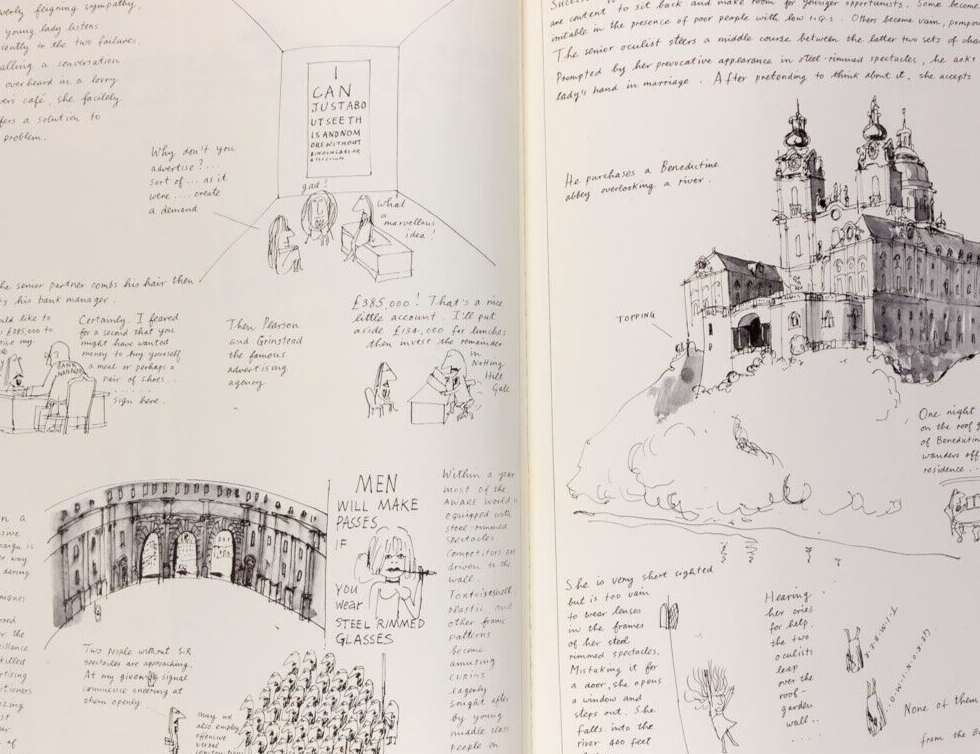 verly feigning sympathy.
young lady listens
iently to the two failures.
alling a conversation
overheard in a lorry
vers café, she facilely
fers a solution to
problem.
I
CAN
JUSTABO
UTSEETH
ISANDNOM
OREWITHOUT
Why don't you
advertise?...
sort of... as it
were.... create
a demand
gad!
What
a
marvellous
idea!
he senior partner combs his hair then
s his bank manager.
uld like to
£385,000 to
my
Certainly. I feared
for a second that you
might have wanted
money to buy yourself
a meal or perhaps a
pair of shoes...
.... sign here.
BANK
MANAGER
Then Pearson
and Grinstead
the famous
advertising
agency
£385,000! That's a nice
little account. I'll put
aside £134,000 for lunches
then invest the remainder
in
Notting
Hill
Gate
MEN
WILL MAKE
PASSES
IF
YOU
wear
STEEL RIMMED
GLASSES
Two people without S.R.
Spectacles are approaching.
At my given signal
commence sneering at
them openly
may we
also employ
offensive
verbal
Within a year
most of the
aware world is
equipped with
steel-rimmed
spectacles.
Competitors are
driven to the
wall.
Tortoiseshell,
plastic, and
other frame
patterns
become
amusing
curios
eagerly
sought after
by young
middle class
people on
are content to sit back and make room for younger opportunists. Some become
irritable in the presence of poor people with low I.Q.s. Others become vain, pompous
The senior oculist steers a middle course between the latter two sets of
Prompted by her provocative appearance in steel-rimmed spectacles, he asks
lady's hand in marriage. After pretending to think about it, she accepts
He purchases a Benedictine
abbey overlooking a river.
TOPPING
One night
on the roof g
of Benedictin
wanders off
residence...
She is very short sighted
but is too vain
to wear lenses
in the frames
of her steel
rimmed spectacles.
Mistaking it for
a door, she opens
a window and
steps out. She
falls into the
river 400 feet
Hearing
her cries
for help.
the two
oculists
leap
over the
roof-
garden
wall...
TIMBER
GERONIMO
None of them
from the